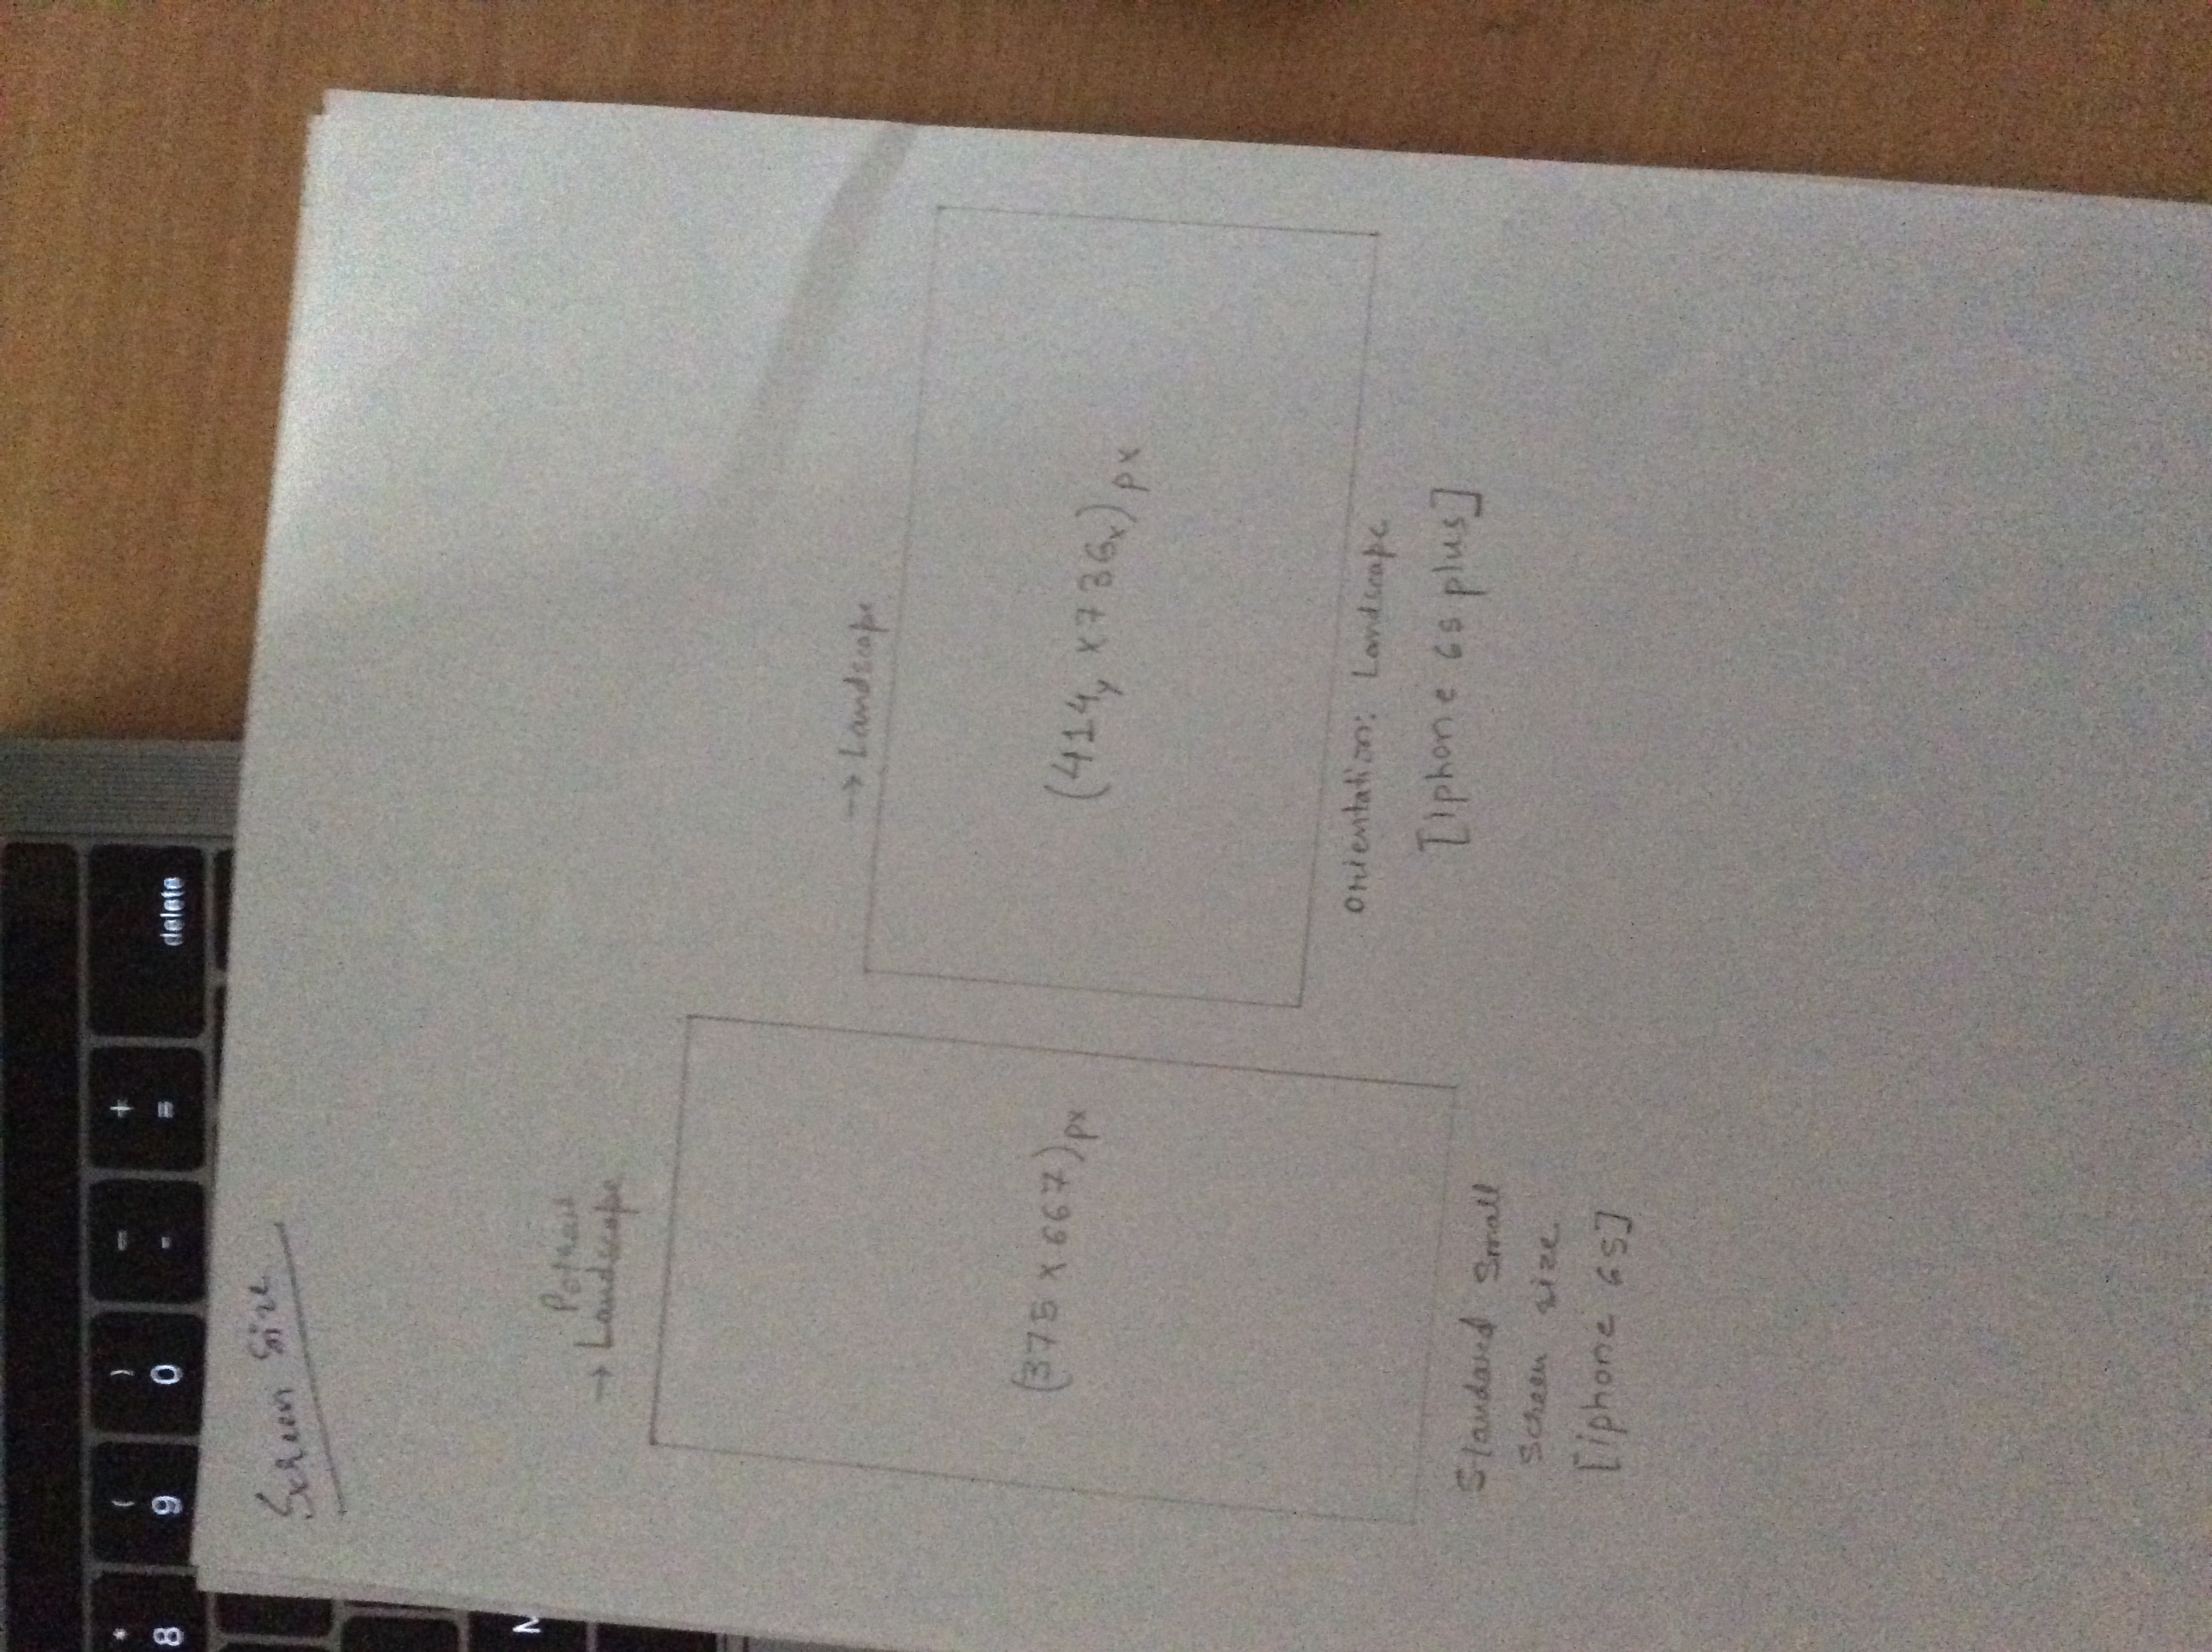 Screen Size
Potrait
→ Landscape
(375 x 667)px
Standard Small
Screen size
[iphone 6s]
→ Landscape
(414y x 736x)px
orientation: Landscape
[Iphone 6s plus]
delete
+
=
-
)
0
(
9
*
8